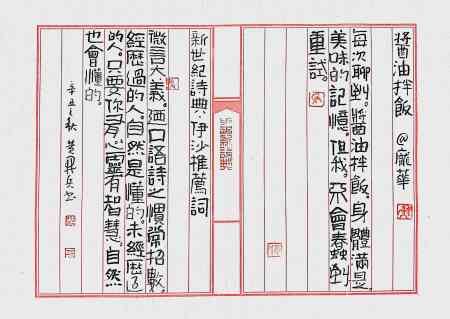 醬油拌飯 @龐華
每次聊到。醬油拌飯。身體滿是
美味的記憶。但我。不會蠢到
重試。
新世紀詩典·伊沙推薦詞
微言大義。迺口語詩之慣常招數。
經歷過的人。自然是懂的。未經歷過
的人。只要你有心靈有智慧。自然
也會懂的。
辛丑之秋 黃開兵书